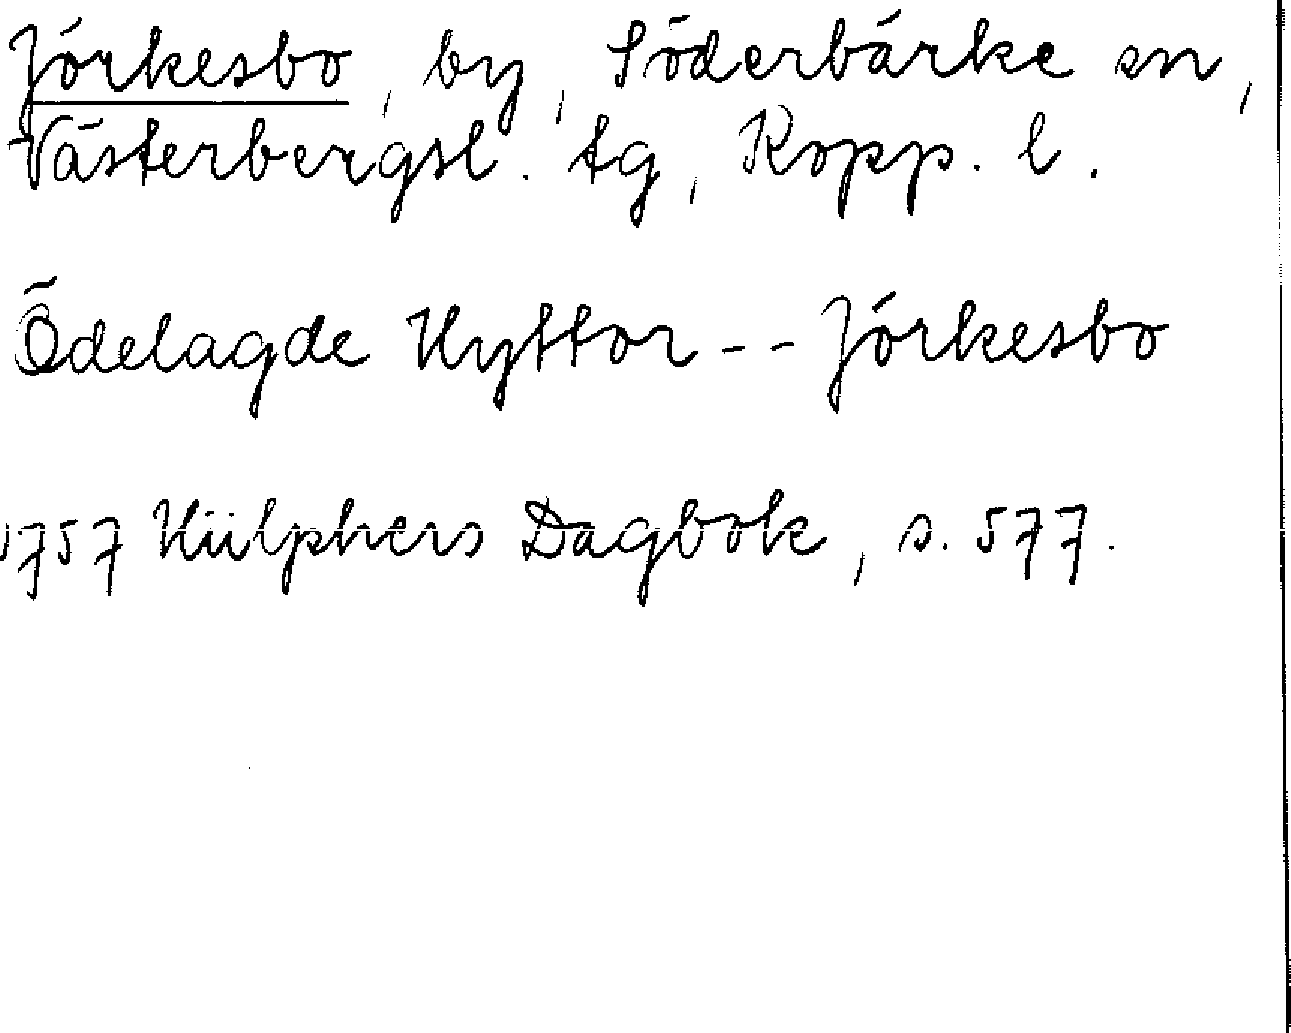 Jörkesbo, by, Söderbärke sn,
Västerbergsl. tg, Kopp. l.
Ödelagde Hyttor -- Jörkesbo
1757 Hülphers Dagbok, s. 577.